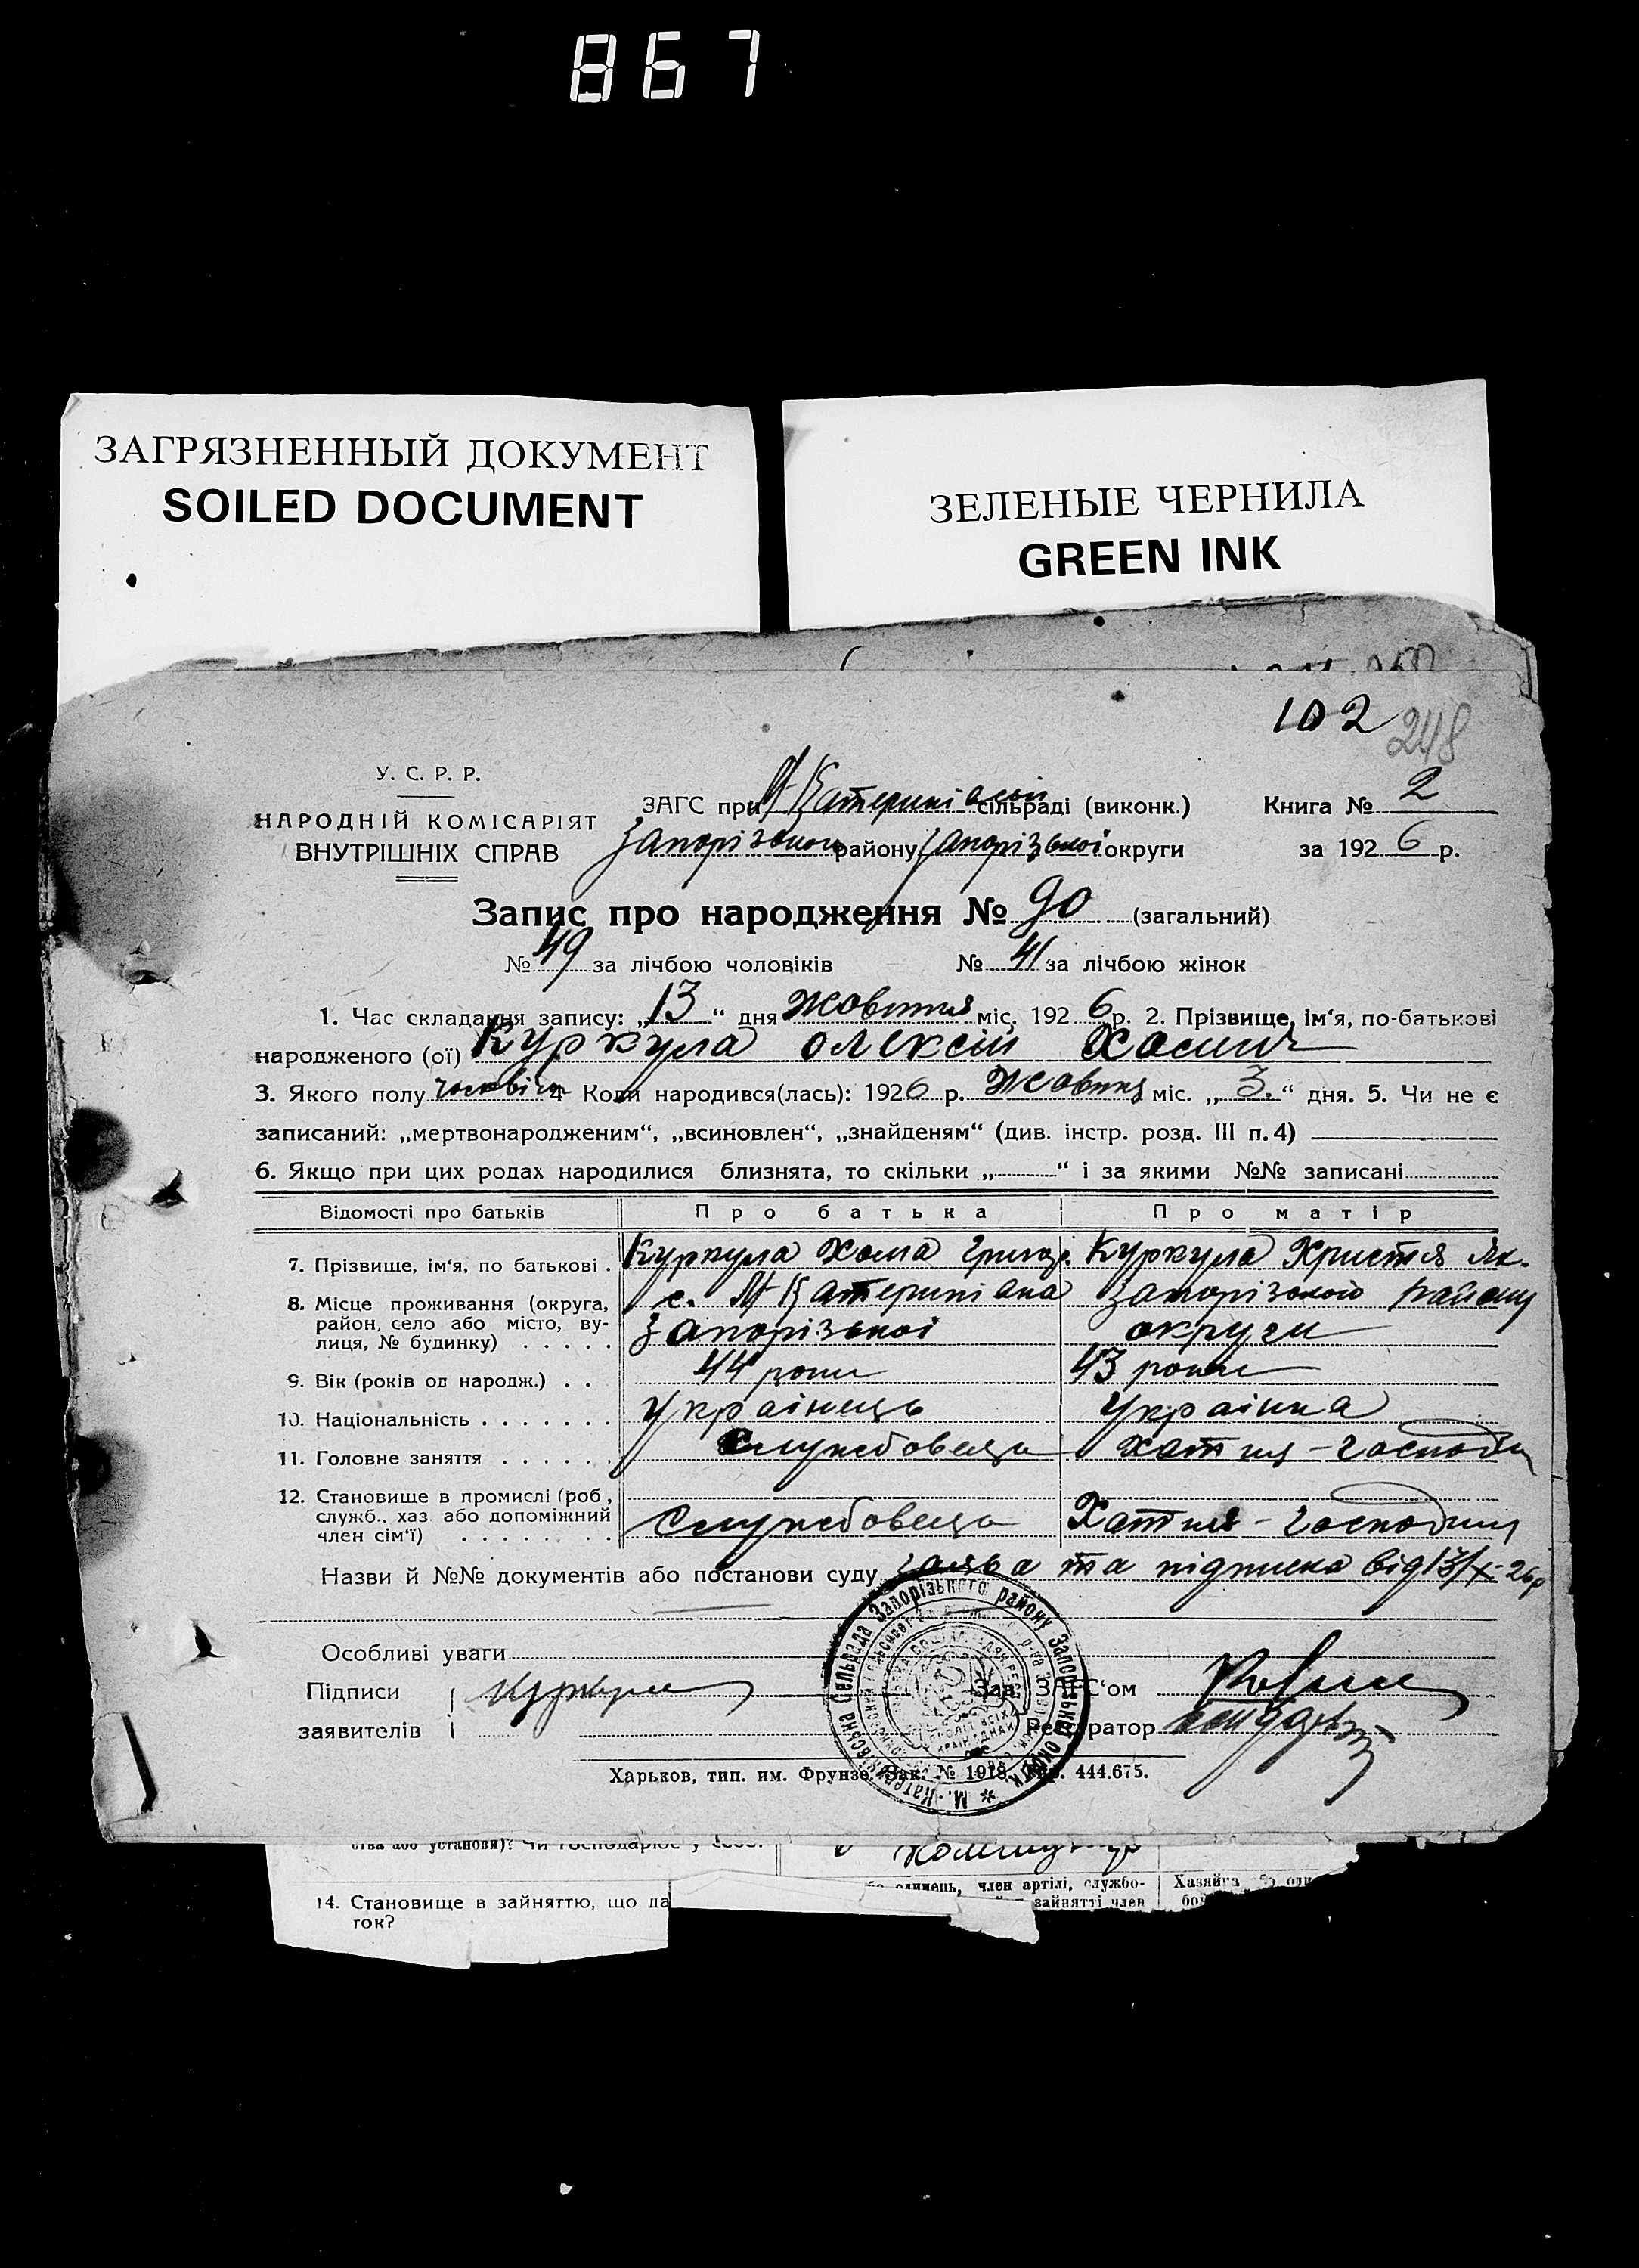 867
ЗАГРЯЗНЕННЫЙ ДОКУМЕНТ
SOILED DOCUMENT
ЗЕЛЕНЫЕ ЧЕРНИЛА
GREEN INK
102 248
У. С. Р. Р.
НАРОДНІЙ КОМІСАРІЯТ
ВНУТРІШНІХ СПРАВ
ЗАГС при М-Катеринівській сільраді (виконк.) Книга № 2
Запорізького району Запорізької округи за 1926 р.
Запис про народження № 90 (загальний)
№ 49 за лічбою чоловіків № 41 за лічбою жінок
1. Час складання запису: „13“ дня Жовтня міс. 1926 р. 2. Прізвище, ім‘я, по-батькові
народженого (ої) Куркула Олексій Хомич
3. Якого полу чоловіч 4 Коли народився(лась): 1926 р. Жовтня міс. „3.“ дня. 5. Чи не є
записаний: „мертвонародженим“, „всиновлен“, „знайденям“ (див. інстр. розд. III п.4)
6. Якщо при цих родах народилися близнята, то скільки „ “ і за якими №№ записані
Відомості про батьків Про батька Про матір
7. Прізвище, ім‘я, по батькові . Куркула Хома Григор. Куркула Христя Як.
8. Місце проживання (округа, район, село або місто, вулиця, № будинку) . . . . . с. М-Катеринівка Запорізького району
Запорізької округи
9. Вік (років од народж.) . . 44 роки 43 роки
10. Національність . . . . . . . Українець Українка
11. Головне заняття . . . . . . Службовець хатня-господин
12. Становище в промислі (роб., служб., хаз. або допоміжний член сім‘ї) . . . . . . . . Службовець Хатня-господиня
Назви й №№ документів або постанови суду заява та підписка від 13/X-26р
Особливі уваги
Підписи заявителів Куркула
Зав. ЗАГС‘ом
Реєстратор
М.-Катеринівська Сельрада Запорізького району Запорізької округи
Харьков, тип. им. Фрунзе. Зак. № 1918. Тир. 444.675.
ства або установи)? Чи господарює у себе.
14. Становище в зайняттю, що да
ток?
одинець, член артілі, службо-
зайнятті член
Хазяйка